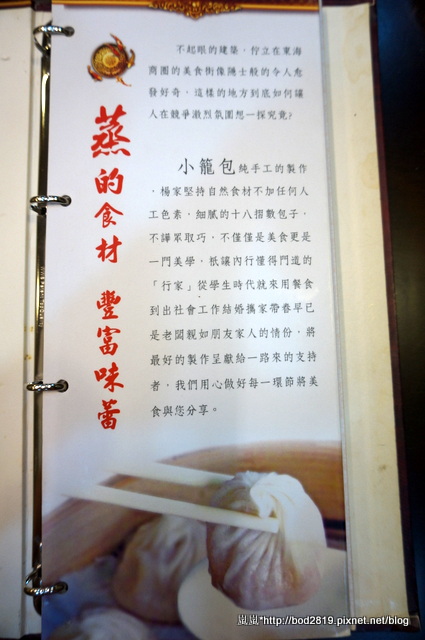 蒸的食材 豐富味蕾
不起眼的建築，佇立在東海
商圈的美食街像隱士般的令人愈
發好奇，這樣的地方到底如何讓
人在競爭激烈氛圍想一探究竟?
小籠包純手工的製作
，楊家堅持自然食材不加任何人
工色素，細膩的十八摺數包子，
不譁眾取巧，不僅僅是美食更是
一門美學，祇讓內行懂得門道的
「行家」從學生時代就來用餐食
到出社會工作結婚攜家帶眷早已
是老闆親如朋友家人的情份，將
最好的製作呈獻給一路來的支持
者，我們用心做好每一環節將美
食與您分享。
嵐嵐*http://bod2819.pixnet.net/blog